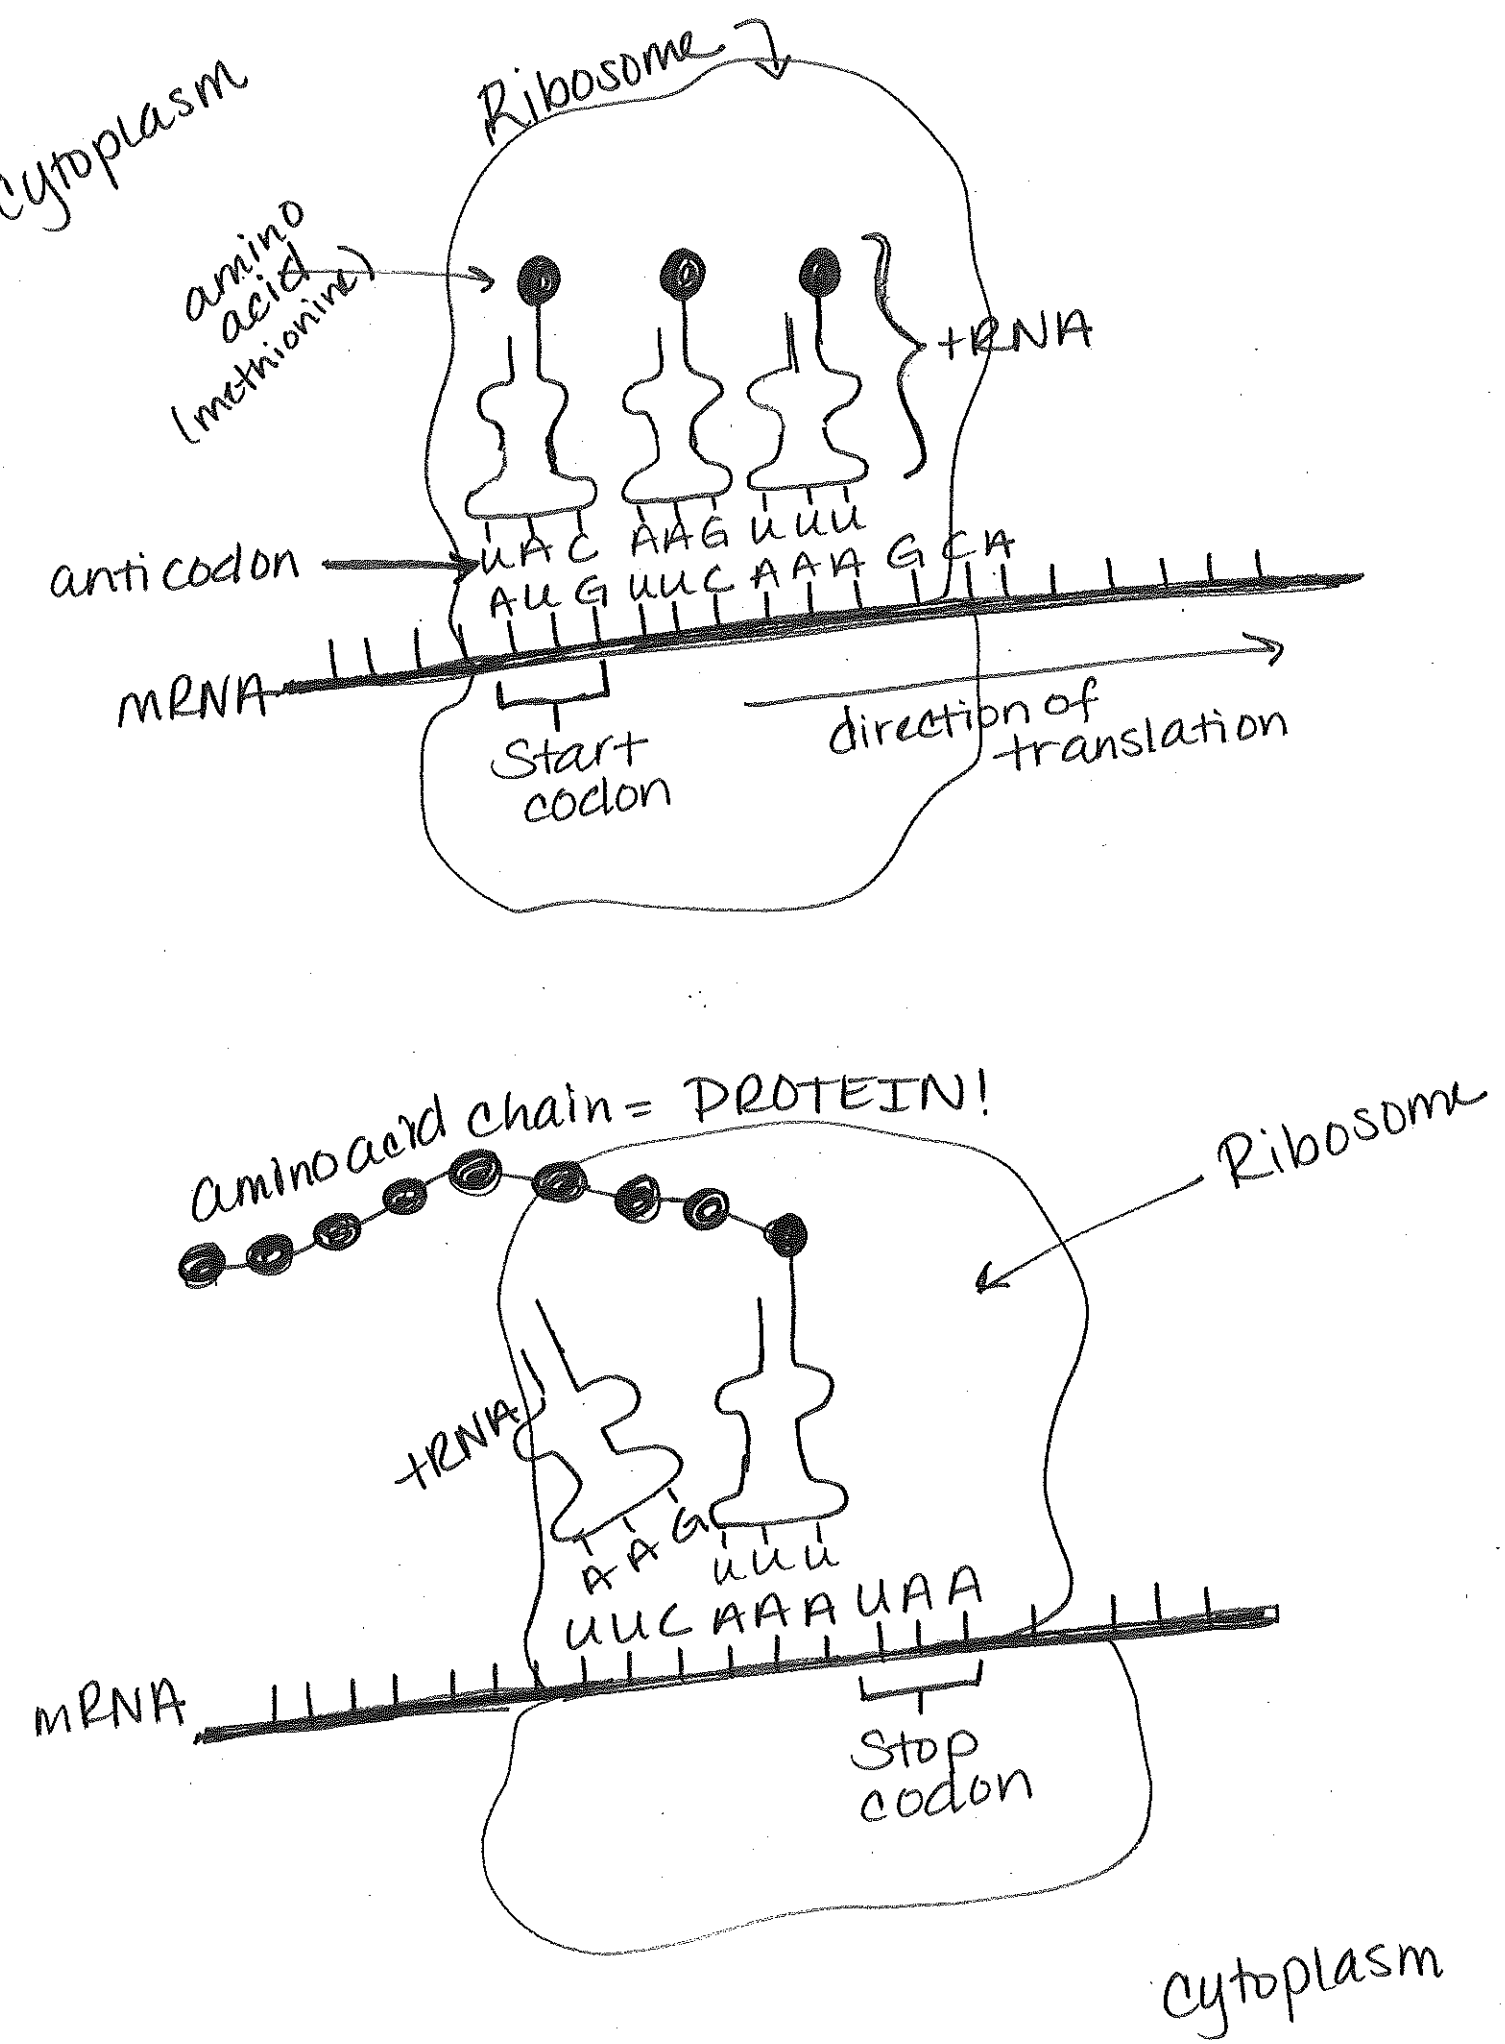 Cytoplasm
Ribosome
amino
acid
(methionine)
tRNA
anticodon
UAC AAG UUU
AUG UUC AAA GCA
mRNA
Start
codon
direction of
translation
amino acid chain = PROTEIN!
Ribosome
tRNA
AAG UUU
UUC AAA UAA
mRNA
Stop
codon
cytoplasm